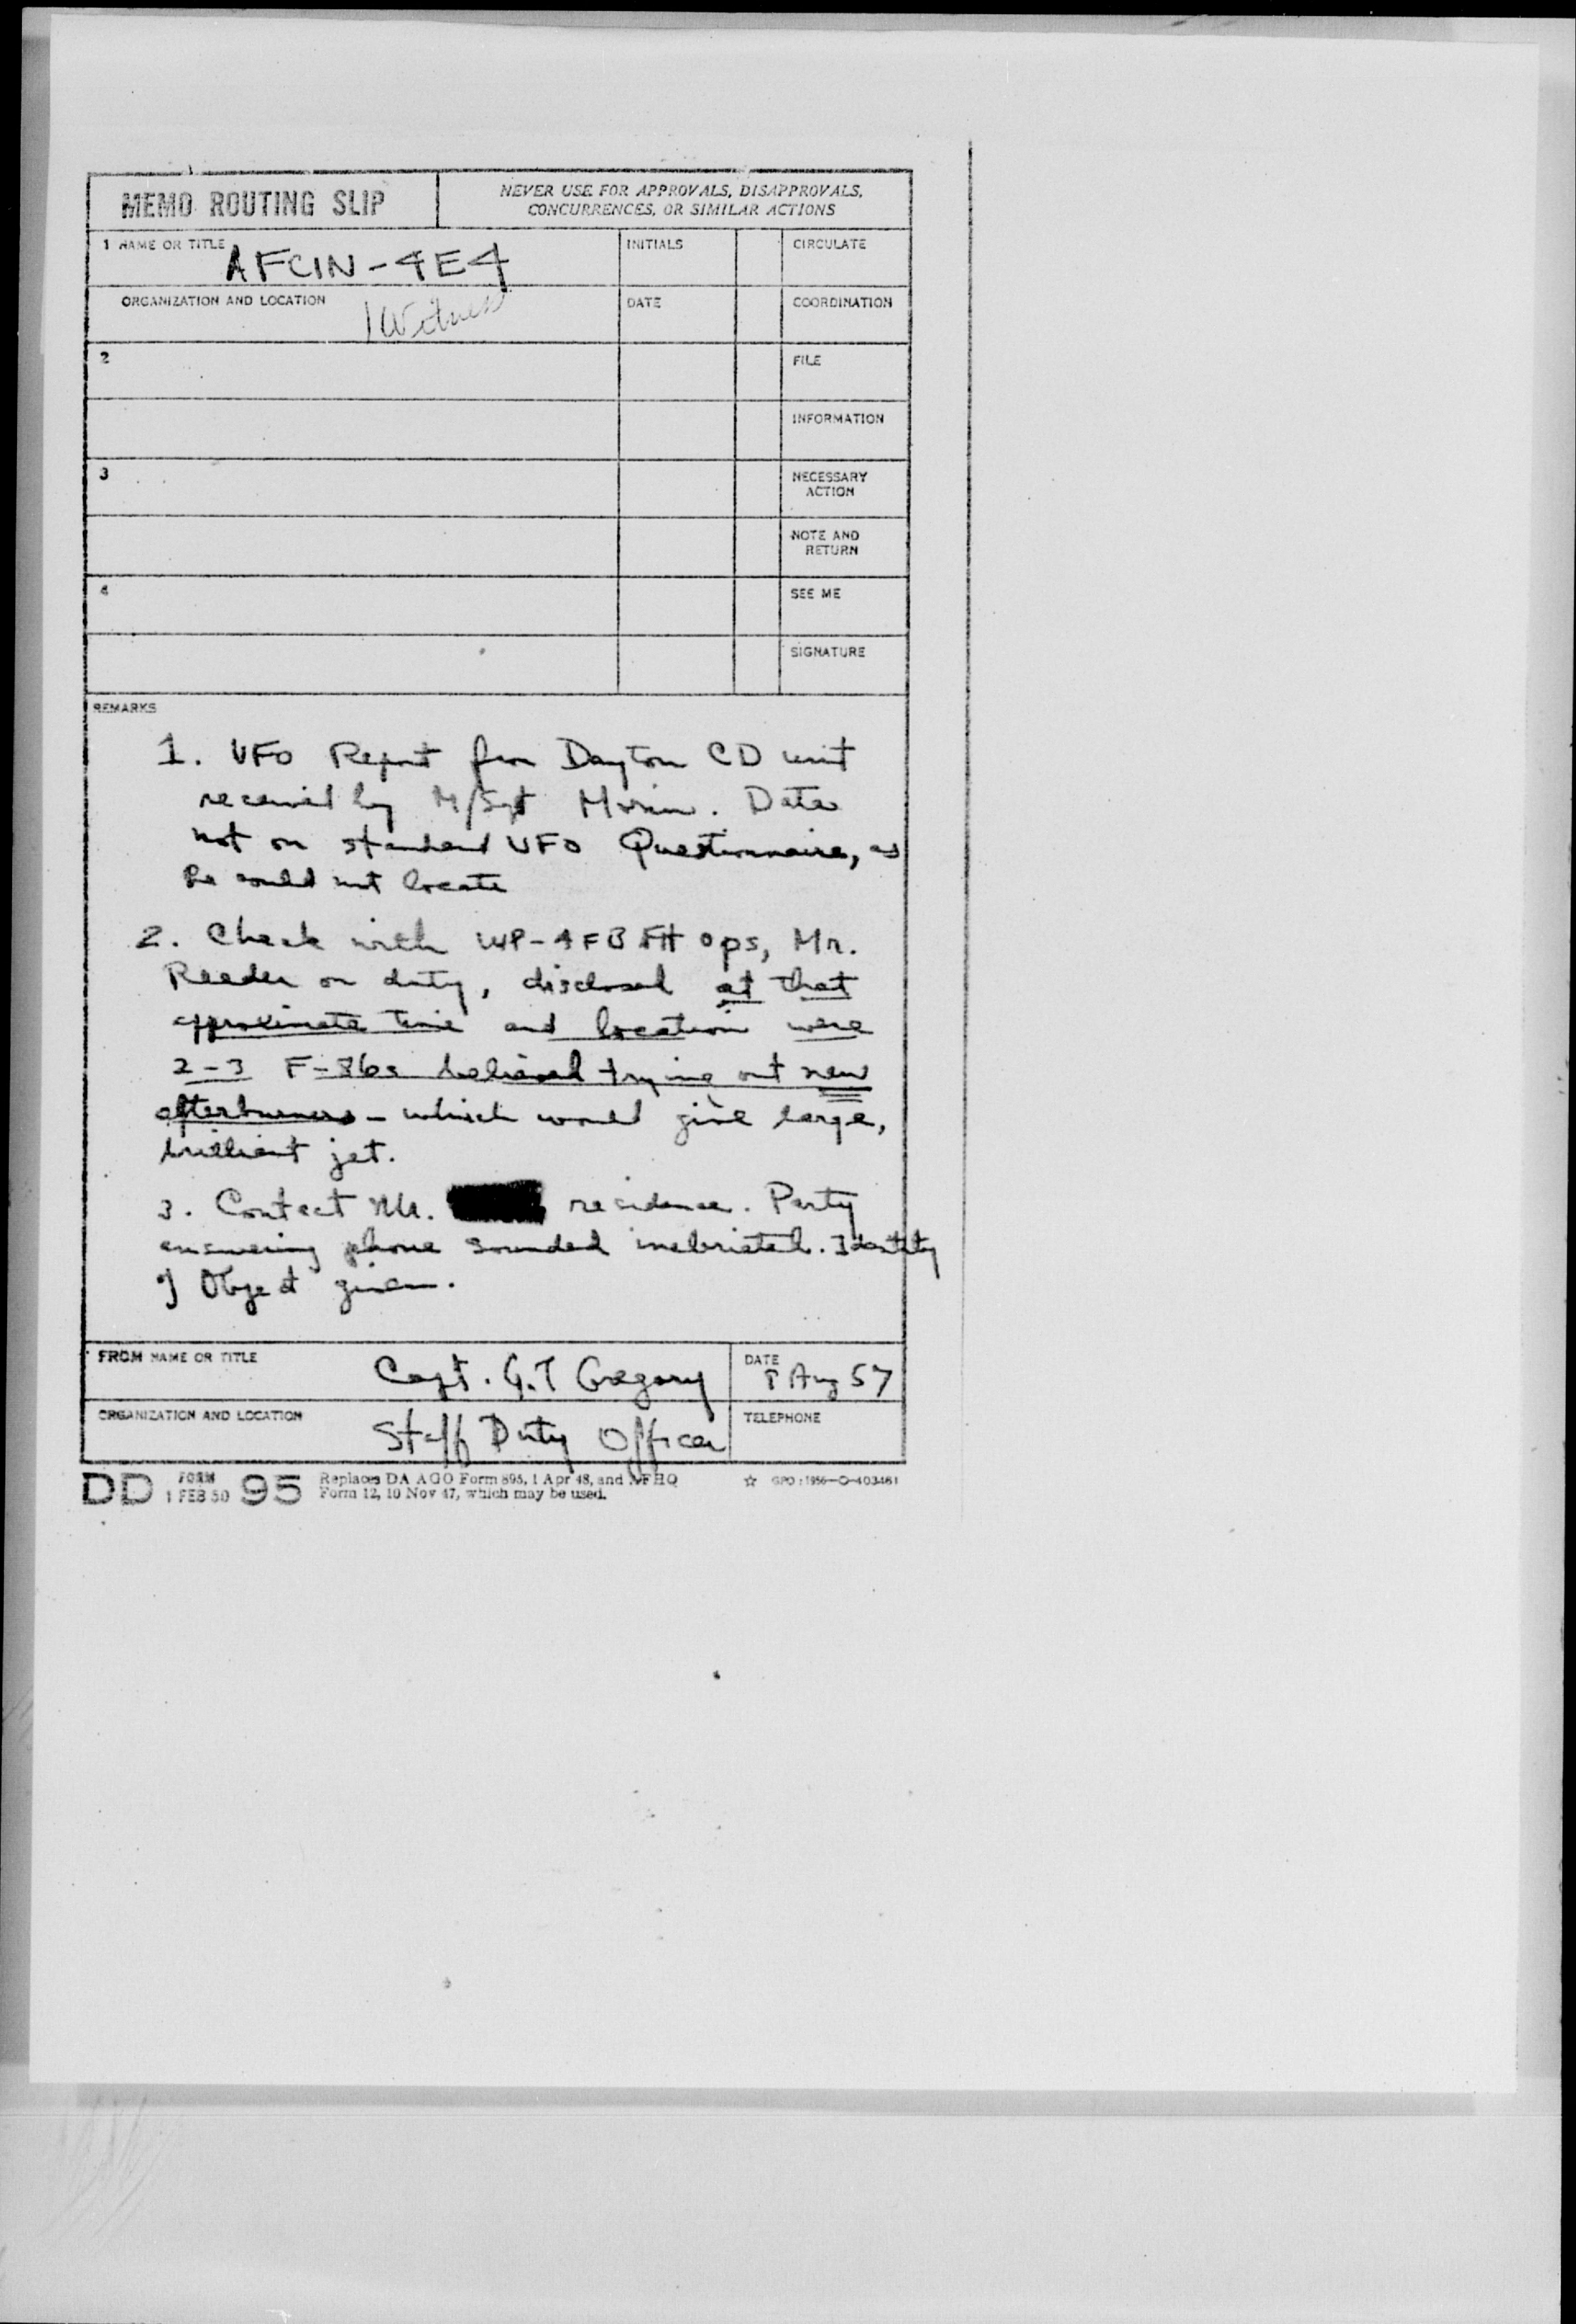 MEMO ROUTING SLIP
NEVER USE FOR APPROVALS, DISAPPROVALS,
CONCURRENCES, OR SIMILAR ACTIONS
1 NAME OR TITLE AFCIN-4E4
INITIALS
CIRCULATE
ORGANIZATION AND LOCATION 1 Witness
DATE
COORDINATION
2
FILE
INFORMATION
3
NECESSARY
ACTION
NOTE AND
RETURN
4
SEE ME
SIGNATURE
REMARKS
1. UFO Report from Dayton CD unit
received by M/Sgt . Data
not on standard UFO Questionnaire, as
he could not locate
2. Check with WP-AFB Flt ops, Mr.
Reeder on duty, disclosed at that
approximate time and location were
2-3 F-86s believed trying out new
afterburners - which would give large,
brilliant jet.
3. Contact Mr. residence. Party
answering phone sounded inebriated. Identity
of Object given.
FROM NAME OR TITLE Capt. G.T Gregory
DATE 8 Aug 57
ORGANIZATION AND LOCATION Staff Duty Officer
TELEPHONE
DD FORM 1 FEB 50 95
Replaces DA AGO Form 895, 1 Apr 48, and AFHQ
Form 12, 10 Nov 47, which may be used.
☆ GPO : 1956—O-403461